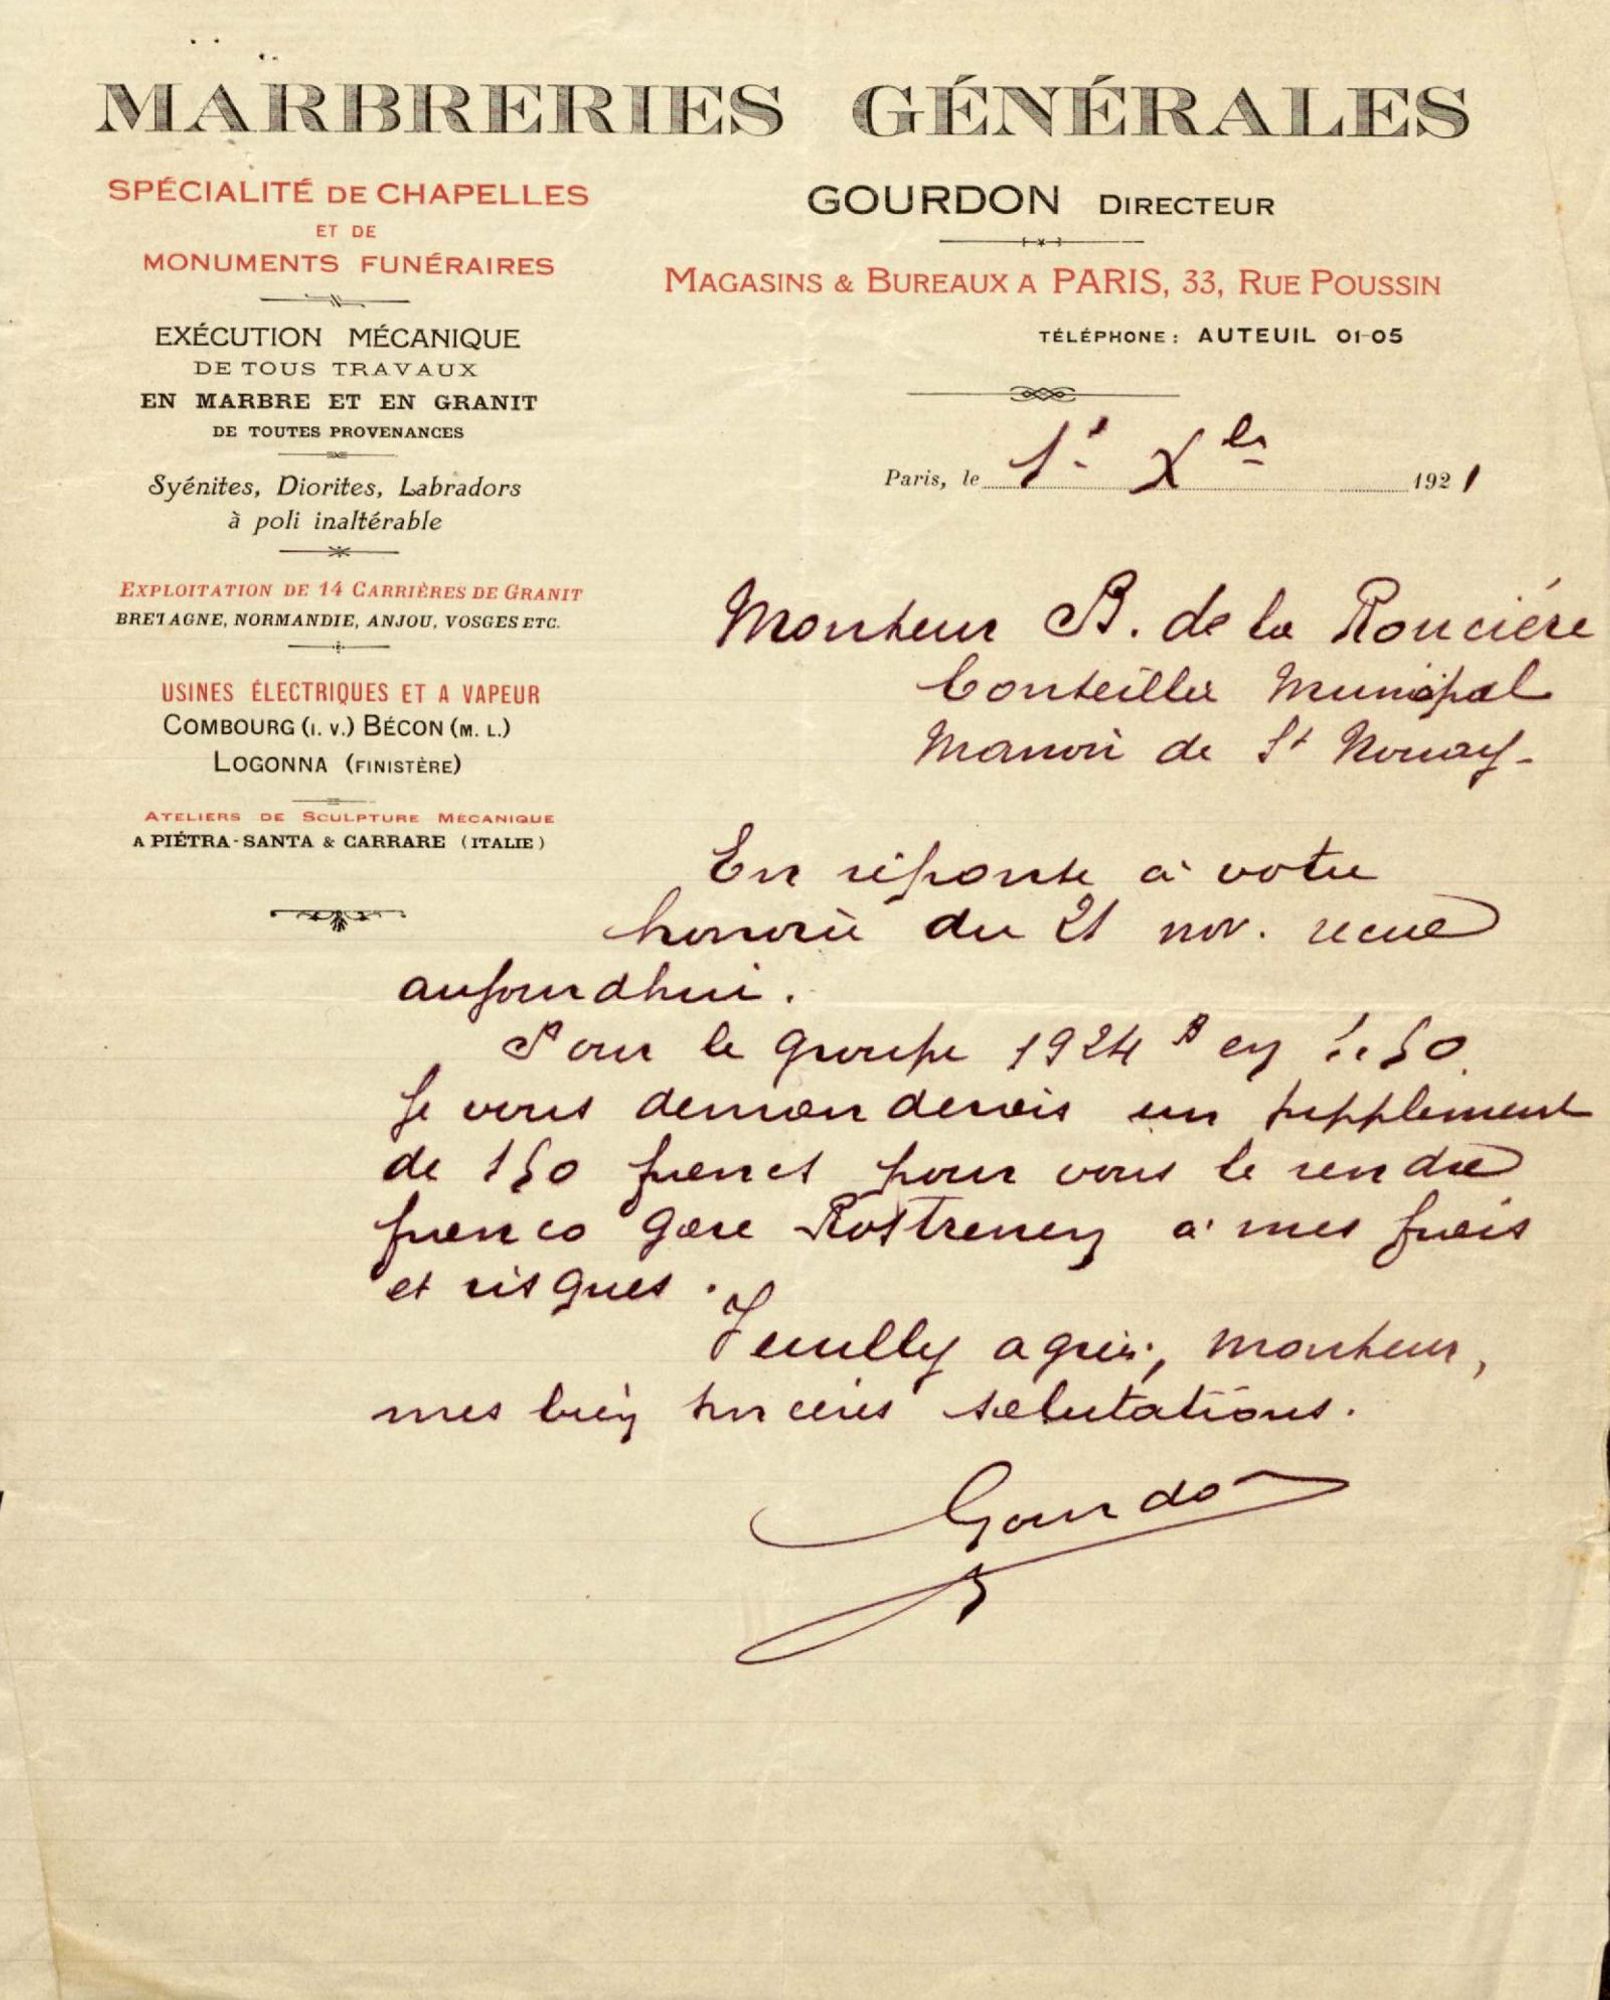 MARBRERIES GÉNÉRALES
SPÉCIALITÉ DE CHAPELLES
ET DE
MONUMENTS FUNÉRAIRES
EXÉCUTION MÉCANIQUE
DE TOUS TRAVAUX
EN MARBRE ET EN GRANIT
DE TOUTES PROVENANCES
Syénites, Diorites, Labradors
à poli inaltérable
EXPLOITATION DE 14 CARRIÈRES DE GRANIT
BRETAGNE, NORMANDIE, ANJOU, VOSGES ETC.
USINES ÉLECTRIQUES ET A VAPEUR
COMBOURG (I. V.) BÉCON (M. L.)
LOGONNA (FINISTÈRE)
ATELIERS DE SCULPTURE MÉCANIQUE
A PIÉTRA-SANTA & CARRARE (ITALIE)
GOURDON DIRECTEUR
MAGASINS & BUREAUX A PARIS, 33, RUE POUSSIN
TÉLÉPHONE : AUTEUIL 01-05
Paris, le 1er Xbre 1921
Monsieur B. de la Roncière
Conseiller Municipal
Manoir de St
En réponse à votre
honorée du 21 nov. recue
aujourdhui.
Pour le groupe 1924 B en 1.50
Je vous demanderais un supplement
de 150 francs pour vous le rendre
franco gare Rostrenen à mes frais
et risques.
Veuillez agréer, Monsieur,
mes bien sincères salutations.
Gourdon